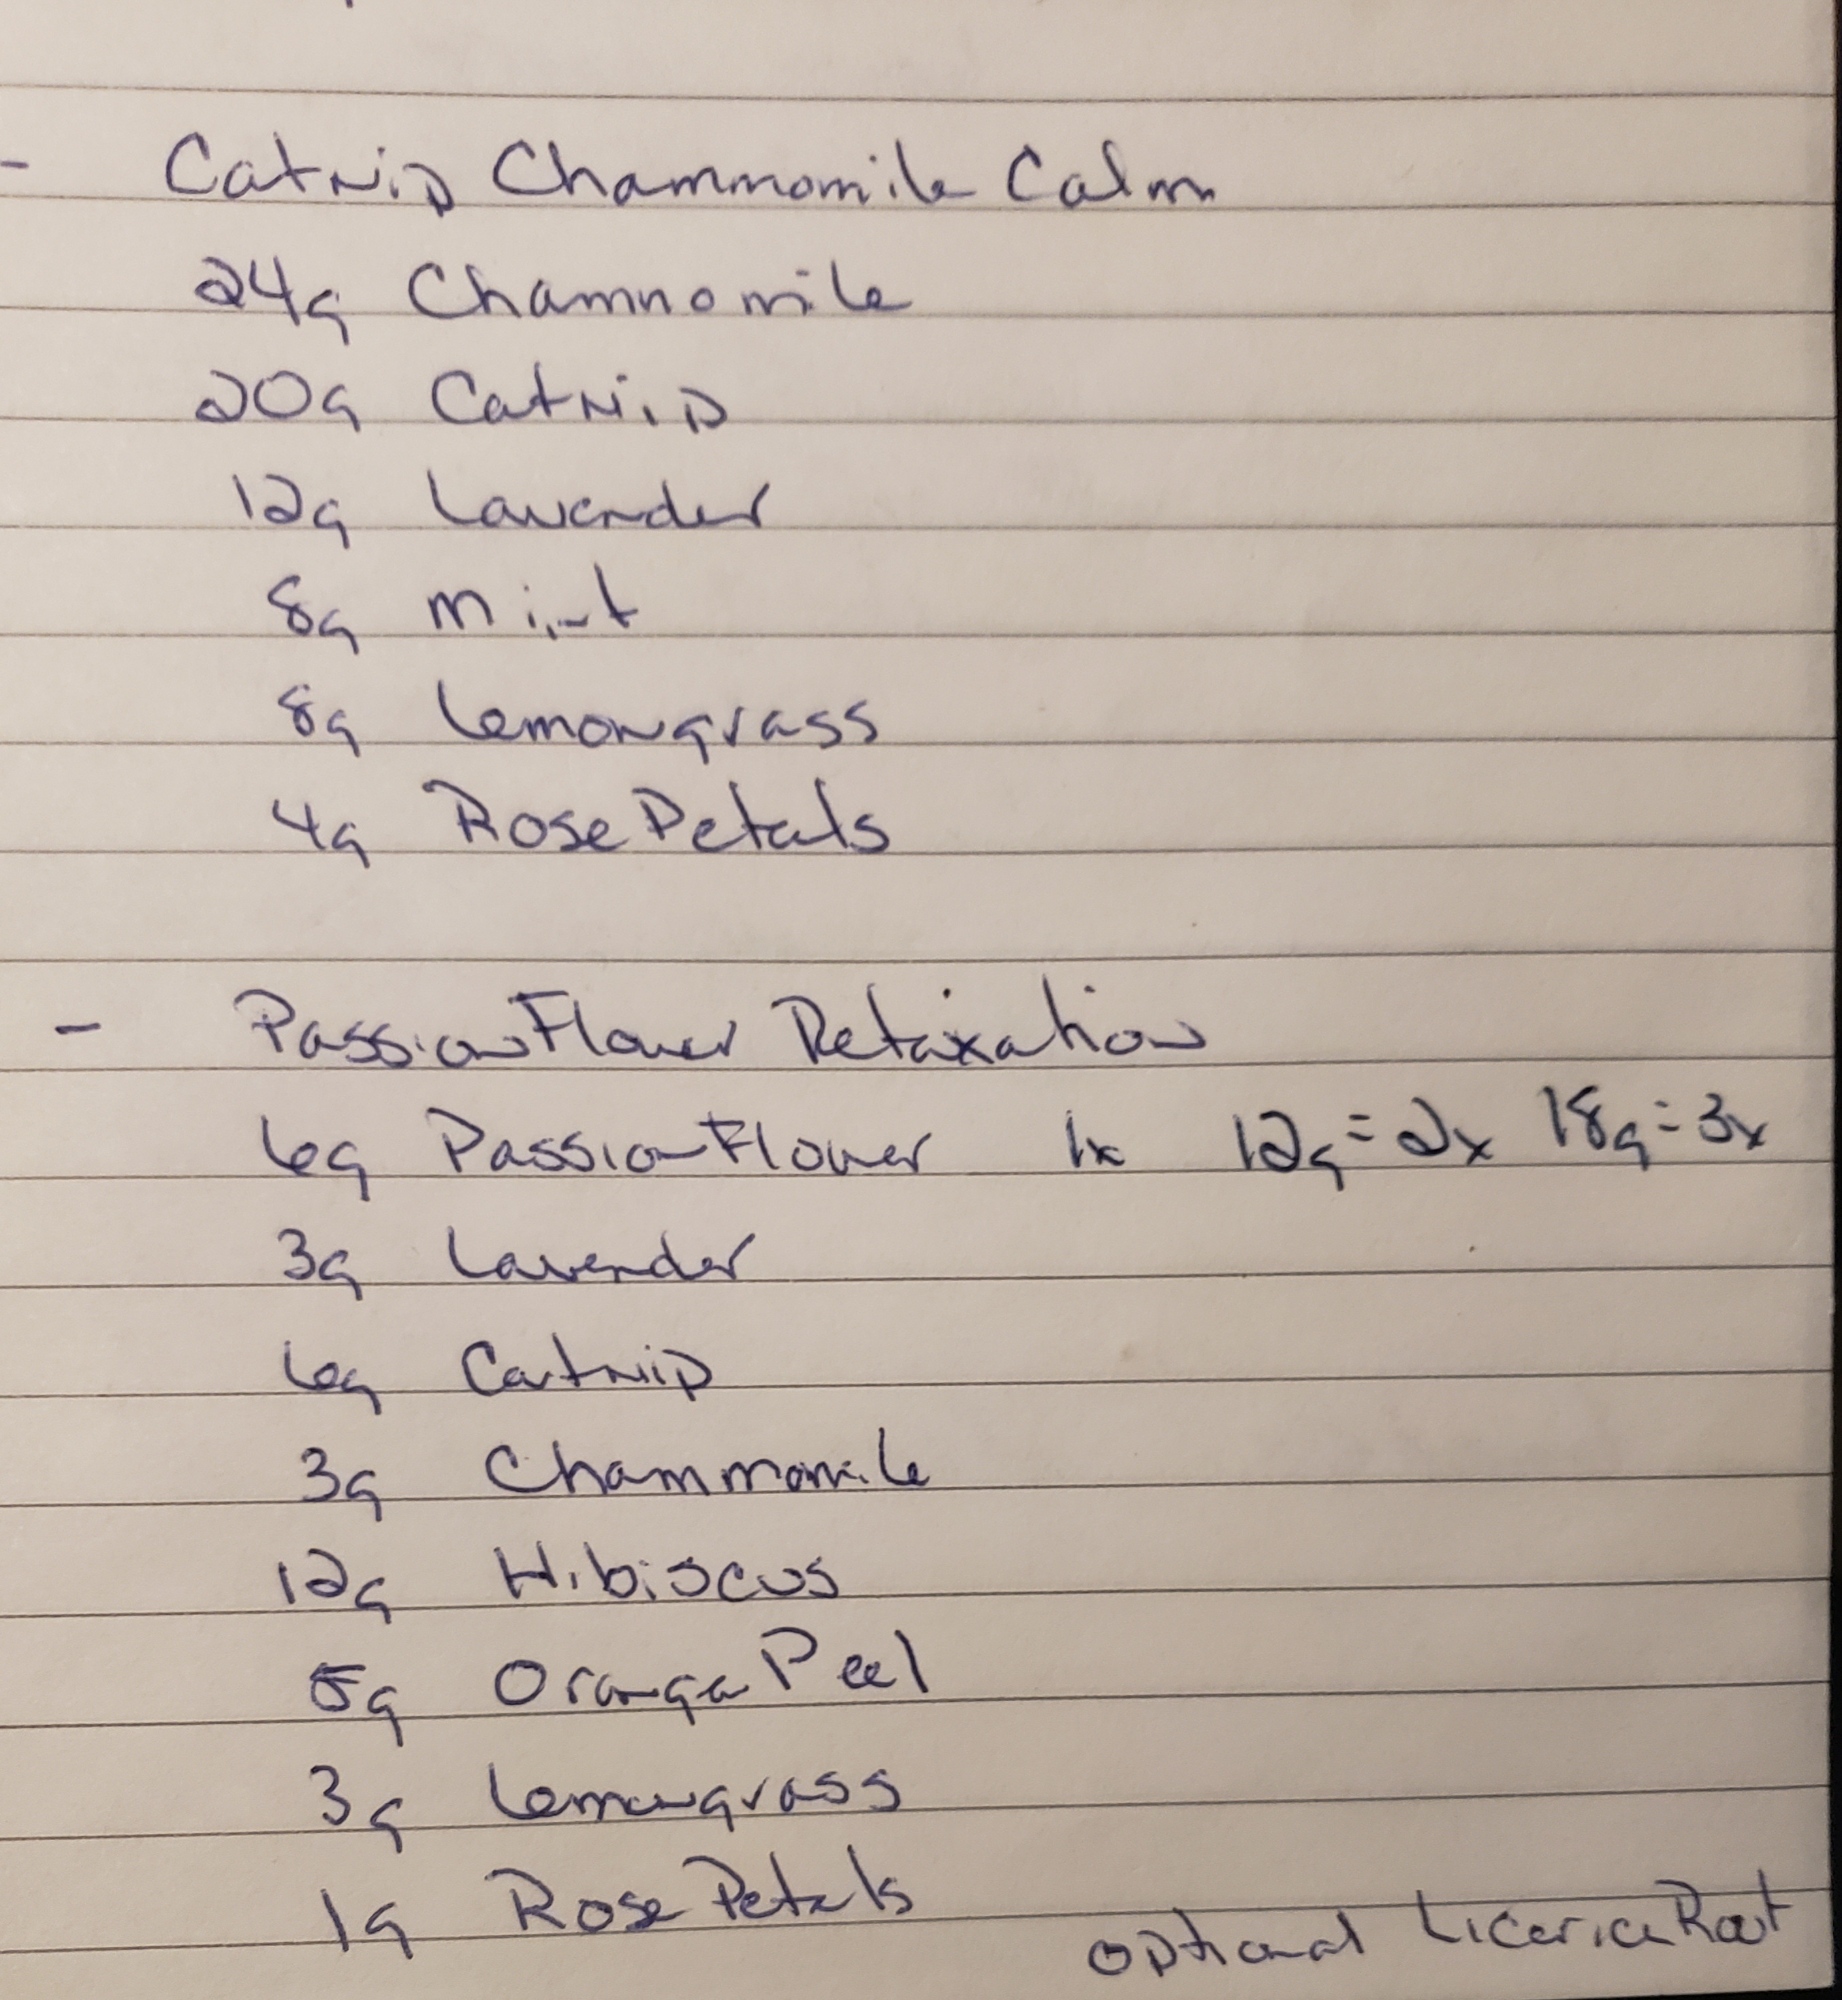 - Catnip Chammomile Calm
24g Chamnomile
20g Catnip
12g Lavender
8g mint
8g Lemongrass
4g Rose Petals
- PassionFlower Relaxation
6g PassionFlower 1x 12g=2x 18g=3x
3g Lavender
6g Catnip
3g Chammomile
12g Hibiscus
5g Orange Peel
3g Lemongrass
1g Rose Petals
optional Licerice Root